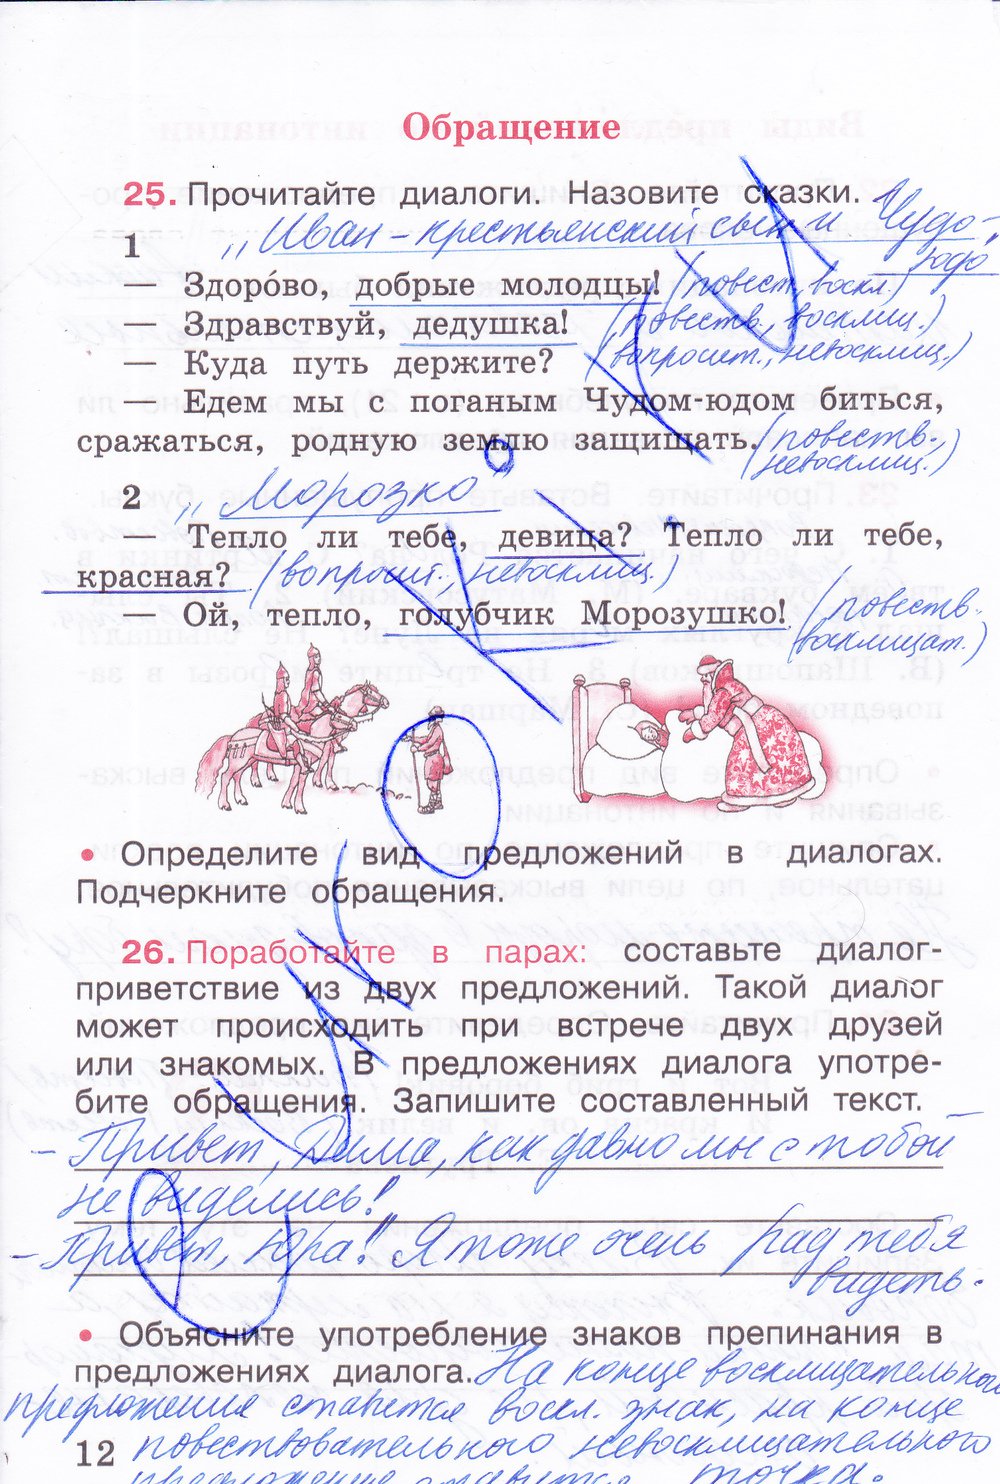 Обращение
25. Прочитайте диалоги. Назовите сказки.
1 „Иван-крестьянский сын и Чудо-
юдо"
— Здоро́во, добрые молодцы! (повест., воскл.)
— Здравствуй, дедушка! (повеств., восклиц.)
— Куда путь держите? (вопросит., невосклиц.)
— Едем мы с поганым Чудом-юдом биться,
сражаться, родную землю защищать. (повеств.,
невосклиц.)
2 „Морозко"
— Тепло ли тебе, девица? Тепло ли тебе,
красная? (вопросит., невосклиц.)
— Ой, тепло, голубчик Морозушко! (повеств.
восклицат.)
• Определите вид предложений в диалогах.
Подчеркните обращения.
26. Поработайте в парах: составьте диалог-
приветствие из двух предложений. Такой диалог
может происходить при встрече двух друзей
или знакомых. В предложениях диалога употре-
бите обращения. Запишите составленный текст.
– Привет, Дима, как давно мы с тобой
не виделись!
– Привет, Юра! Я тоже очень рад тебя
видеть.
• Объясните употребление знаков препинания в
предложениях диалога. На конце восклицательного
предложения ставится воскл. знак, на конце
12 повествовательного невосклицательного
предложения ставится точка.